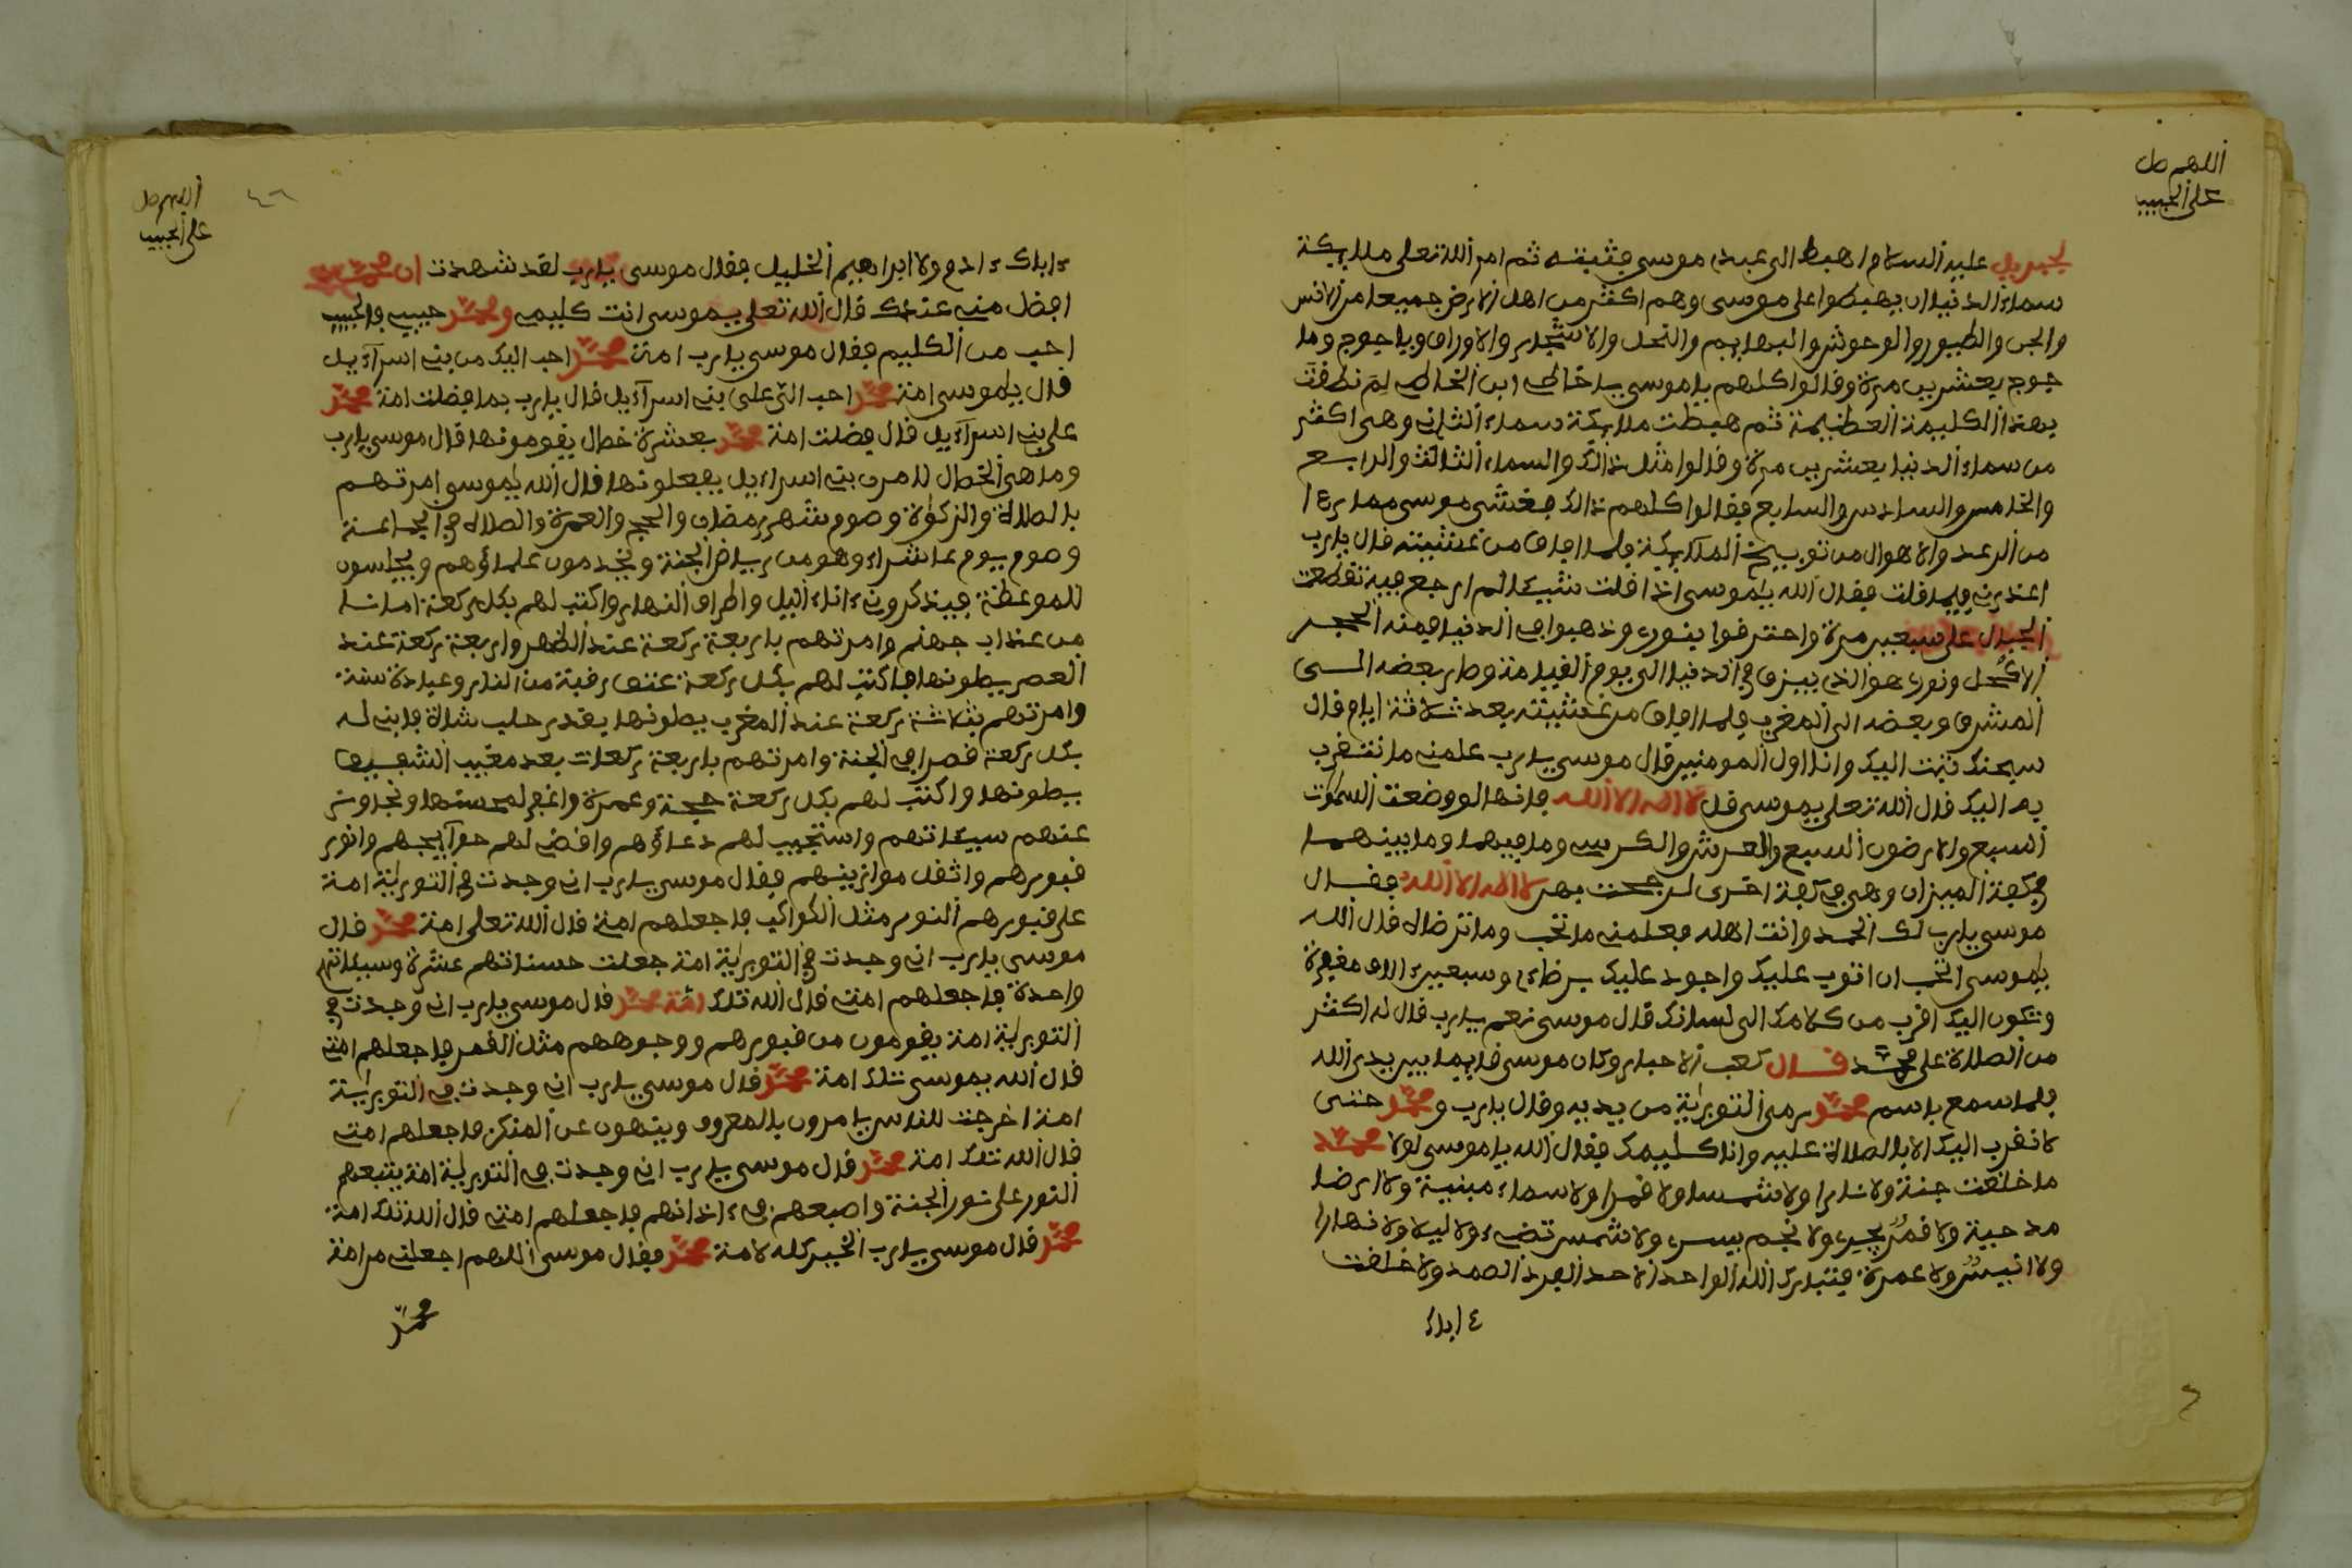 اللهم صل
على الحبيب
لجبريل عليه السلام اهبط الى عبدي موسى فثبته ثم امر الله تعلى ملايكة
سماء الدنيا ان يهبطوا على موسى وهم اكثر من اهل الارض جميعا من الانس
والجن والطيور والوحوش والبهايم والنحل والاشجار والاوراق وياجوج وما
جوج بعشرين مرة وقالوا كلهم يا موسى يا خاطى ابن الخاطى لم نطقت
بهذا الكليمة العظيمة ثم هبطت ملايكة سماء الثانى وهى اكثر
من سماء الدنيا بعشرين مرة وقالوا مثل ذالك والسماء الثالث والرابع
والخامس والسادس والسابع فقالوا كلهم ذالك فغشى موسى مما يرءا
من الرعد والاهوال من توبيخ الملايكة فلما افاق من غشيته قال يارب
اعذرنى فيما قلت فقال الله ياموسى اذا قلت شيئا لم ارجع فيه تقطعت
الجبال على سبعين مرة واحترقوا بنوره وذهبوا فى الدنيا فمنه الحجر
الاكحل ونوره هو الذى يبرق فى الدنيا الى يوم القيامة وطار بعضه الى
المشرق وبعضه الى المغرب فلما افاق من غشيته بعد ثلاثة ايام قال
سبحنك تبت اليك وانا اول المومنين قال موسى يارب علمنى ما نتقرب
به اليك قال الله تعلى يموسى قل لا اله الا الله فانها لو وضعت السموت
السبع والارضون السبع والعرش والكرسى وما فيهما وما بينهما
فى كفة الميزان وهى فى كفة اخرى لرجحت بهم لا اله الا الله فقال
موسى يارب لك الحمد وانت اهله فعلمنى ما تحب وما ترضاه قال الله
ياموسى اتحب ان اتوب عليك واجود عليك برضاءى وسبعين الف مغفرة
وتكون اليك اقرب من كلامك الى لسانك قال موسى نعم يارب قال له اكثر
من الصلاة على محمد قال كعب الاحبار وكان موسى قايما بين يدى الله
فلما سمع باسم محمد رمى التورية من يديه وقال يارب و محمد حتى
لا نقرب اليك الا بالصلاة عليه وانا كليمك فقال الله يا موسى لولا محمد
ما خلقت جنة ولا نارا ولا شمسا ولا قمرا ولا سماء مبنية ولا ارضا
مدحية ولا قمر يجرى ولا نجم يسرى ولا شمس تضىء ولا ليلا ولا نهارا
ولا انيس ولا عمرة فتبارك الله الواحد الاحد الفرد الصمد ولا خلقت
ءاباك
اللهم صل
على الحبيب
٤٦
ءاباك ءادم ولا ابراهيم الخليل فقال موسى يارب لقد شهدت ان محمد
افضل منى عندك قال الله تعلى يموسى انت كليمى ومحمد حبيبى والحبيب
احب من الكليم فقال موسى يارب امة محمد احب اليك من بنى اسراءيل
قال ياموسى امة محمد احب الي على بنى اسراءيل قال يارب بما فضلت امة محمد
على بنى اسراءيل قال فضلت امة محمد بعشرة خصال يقومونها قال موسى يارب
وما هى الخصال لامرن بنى اسراءيل يجعلونها قال الله ياموسى امرتهم
بالصلاة والزكوة وصوم شهر رمضان والحج والعمرة والصلاة فى الجماعة
وصوم يوم عاشراء وهو من رياض الجنة ويخدمون علماؤهم ويجلسون
للموعظة فيذكرونى ءاناء اليل واطراف النهار واكتب لهم بكل ركعة امانا
من عذاب جهنم وامرتهم باربعة ركعة عند الظهر واربعة ركعة عند
العصر يصلونها فاكتب لهم بكل ركعة عتق رقبة من النار وعبادة سنة
وامرتهم بثلاثة ركعة عند المغرب يصلونها بقدر حلب شاة فابنى له
بكل ركعة قصرا فى الجنة وامرتهم باربعة ركعات بعد مغيب الشفيق
يصلونها واكتب لهم بكل ركعة حجة وعمرة واغفر لهم ونجاوز
عنهم سيئاتهم واستجيب لهم دعاؤهم واقضى لهم حوآيجهم وانور
قبورهم واثقل موازينهم فقال موسى يارب انى وجدت فى التورية امة
على قبورهم النور مثل الكواكب فاجعلهم امتى قال الله تعلى امة محمد قال
موسى يارب انى وجدت فى التورية امة جعلت حسناتهم عشرة وسيئاتهم
واحدة فاجعلهم امتى قال الله تلك امة محمد قال موسى يارب انى وجدت فى
التورية امة يقومون من قبورهم ووجوههم مثل القمر فاجعلهم امتى
قال الله يموسى تلك امة محمد قال موسى يارب انى وجدت فى التورية
امة اخرجت للناس يامرون بالمعروف وينهون عن المنكر فاجعلهم امتى
قال الله تلك امة محمد قال موسى يارب انى وجدت فى التورية امة يتبعهم
النور على نور الجنة واصبعهم فى ءاذانهم فاجعلهم امتى قال الله تلك امة
محمد قال موسى يارب الخير كله لامة محمد فقال موسى اللهم اجعلنى من امة
محمد